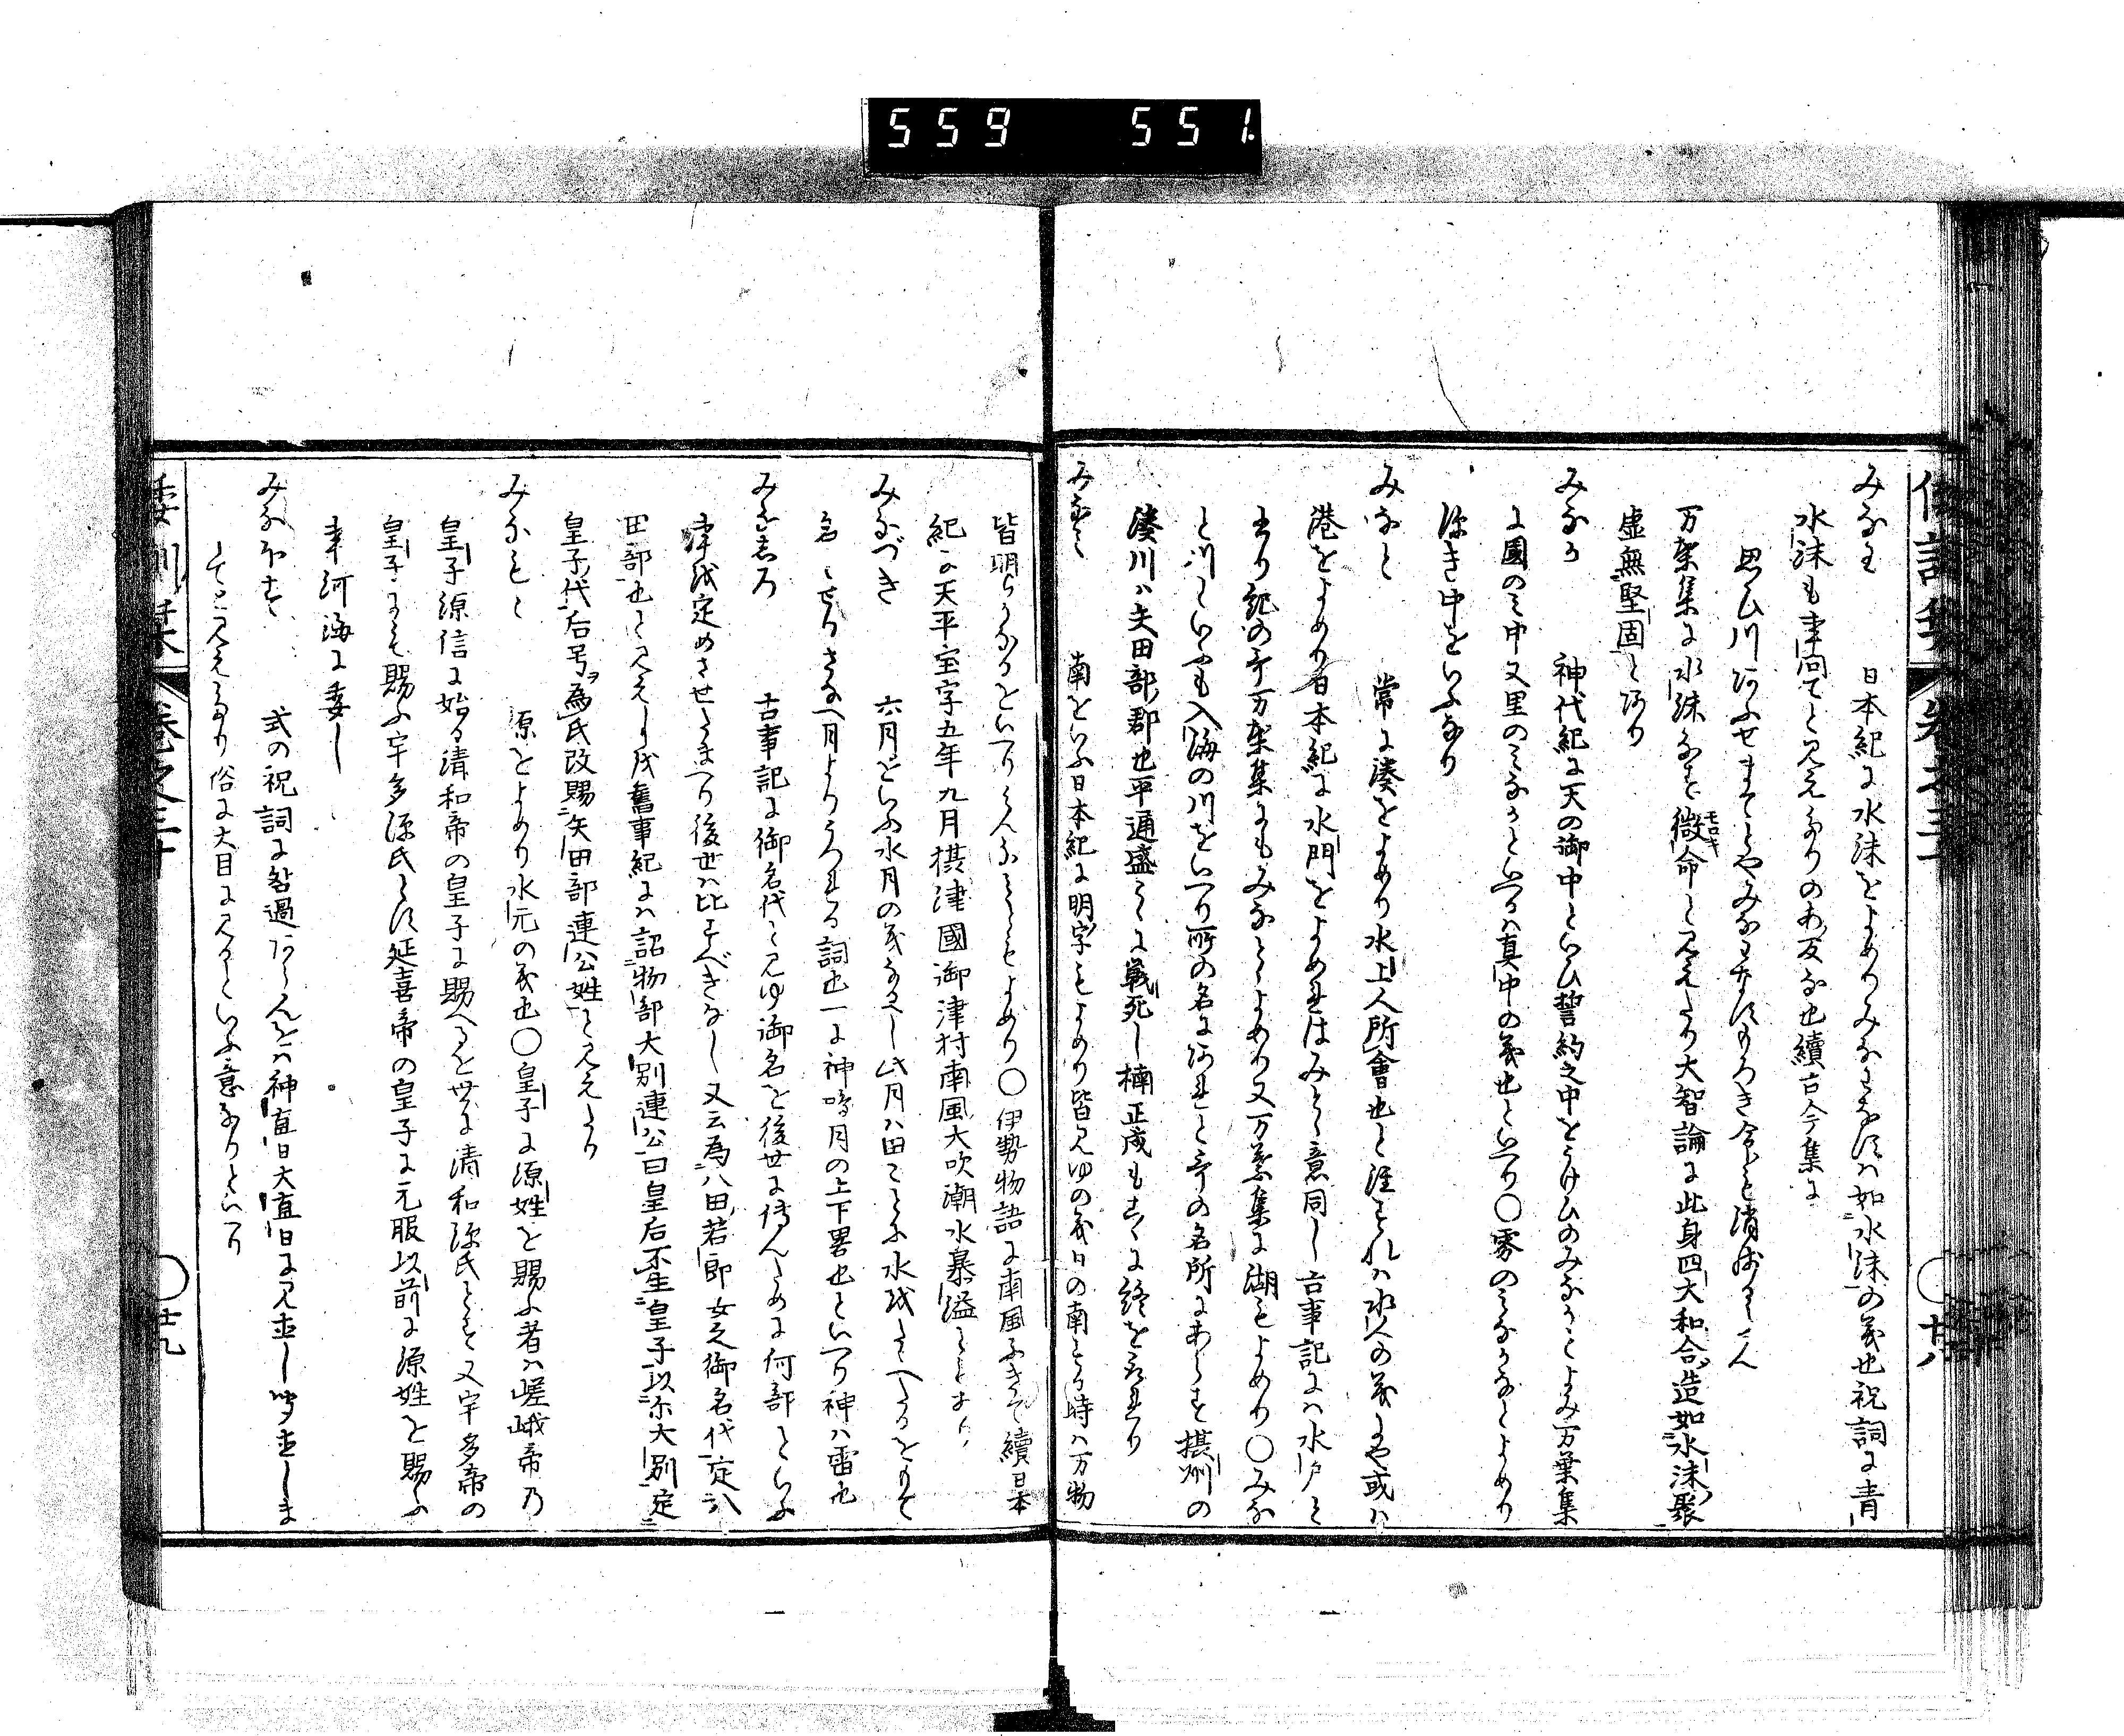 559 551
みなわ 日本紀に水沫をよめりみなわなすハ如水沫の義也祝詞に青
水沫も事問てと見えたりのあ反な也續古今集に
思ひ川
万葉集に水沫なす微命と見えたり大智論に此身四大和合造如水沫聚
虚無堅固とあり
みなか 神代紀に天の御中といひ誓約之中をうけひのみなかとよみ万葉集
に國のみ中又里のみなかといへるハ真中の義也といへり〇雰のみなかなとよめり
深き中をいふなり
みなと 常に湊をよめり水上人所會也と注すれハ水人の義にや或ハ
港をよめり日本紀に水門をよめるはみと意同し古事記にハ水戸と
万葉集にもみなとよめり又万葉集に湖をよめり〇みな
と川といふも入海の川をいへり所の名にあれと哥の名所にあらす摂州の
湊川ハ矢田部郡也平通盛こゝに戦死し楠正成もこゝに終をとれり
みなみ 南をいふ日本紀に明字をよめり皆見ゆの義日の南する時ハ万物
皆明らかなるをいへり〇伊勢物語に南風ふきて續日本
紀に天平宝字五年九月摂津國御津村南風大吹潮水暴溢とあり
みなづき 六月をいふ水月の義なるへし此月ハ田ことに水をたゝへたるをもて
名とせりさなへ月よりうつれる詞也一に神鳴月の上下畧也といへり神ハ雷也
みなしろ 古事記に御名代と見ゆ御名を後世に傳んために何部といふ
事を定めさせたまへり後世ハ比すへきなし又云為八田若郎女之御名代定八
田部也と見えしを舊事紀にハ詔物部大別連公曰皇后不生皇子以尓大別定
皇子代后号為氏改賜矢田部連公姓と見えたり
みなもと 源をよめり水元の義也〇皇子に源姓を賜ふ者ハ嵯峨帝乃
皇子源信に始る清和帝の皇子に賜へるを世に清和源氏とす又宇多帝の
皇子にも賜ふ宇多源氏とす延喜帝の皇子に元服以前に源姓を賜ふ
事河海に委し
みなほす 式の祝詞に咎過あらんをハ神直日大直日に見直し聞直しま
してと見えたり俗に大目に見るといふ意なりといへり
倭訓栞 巻之三十 〇廿九